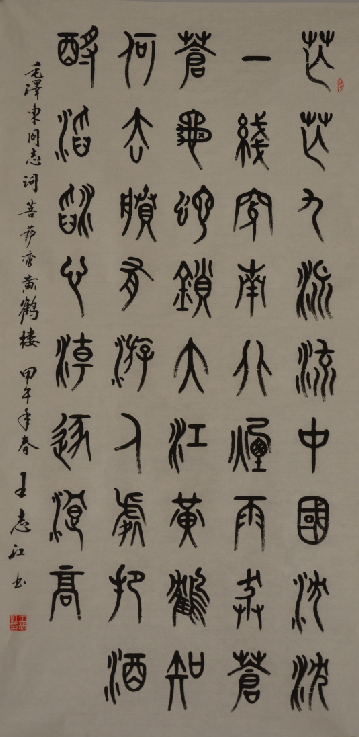 茫茫九派流中國沈沈
一綫穿南北煙雨莽蒼
蒼龜蛇鎖大江黃鶴知
何去賸有游人處把酒
酹滔滔心潮逐浪高
毛澤東同志词菩薩蠻黄鶴楼 甲午年春 王志江书